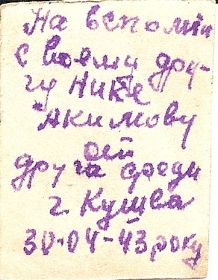 На вспомін
своему дру-
гу Нике
Акимову
от
друга среди
г. Кушва
30-04-43 року